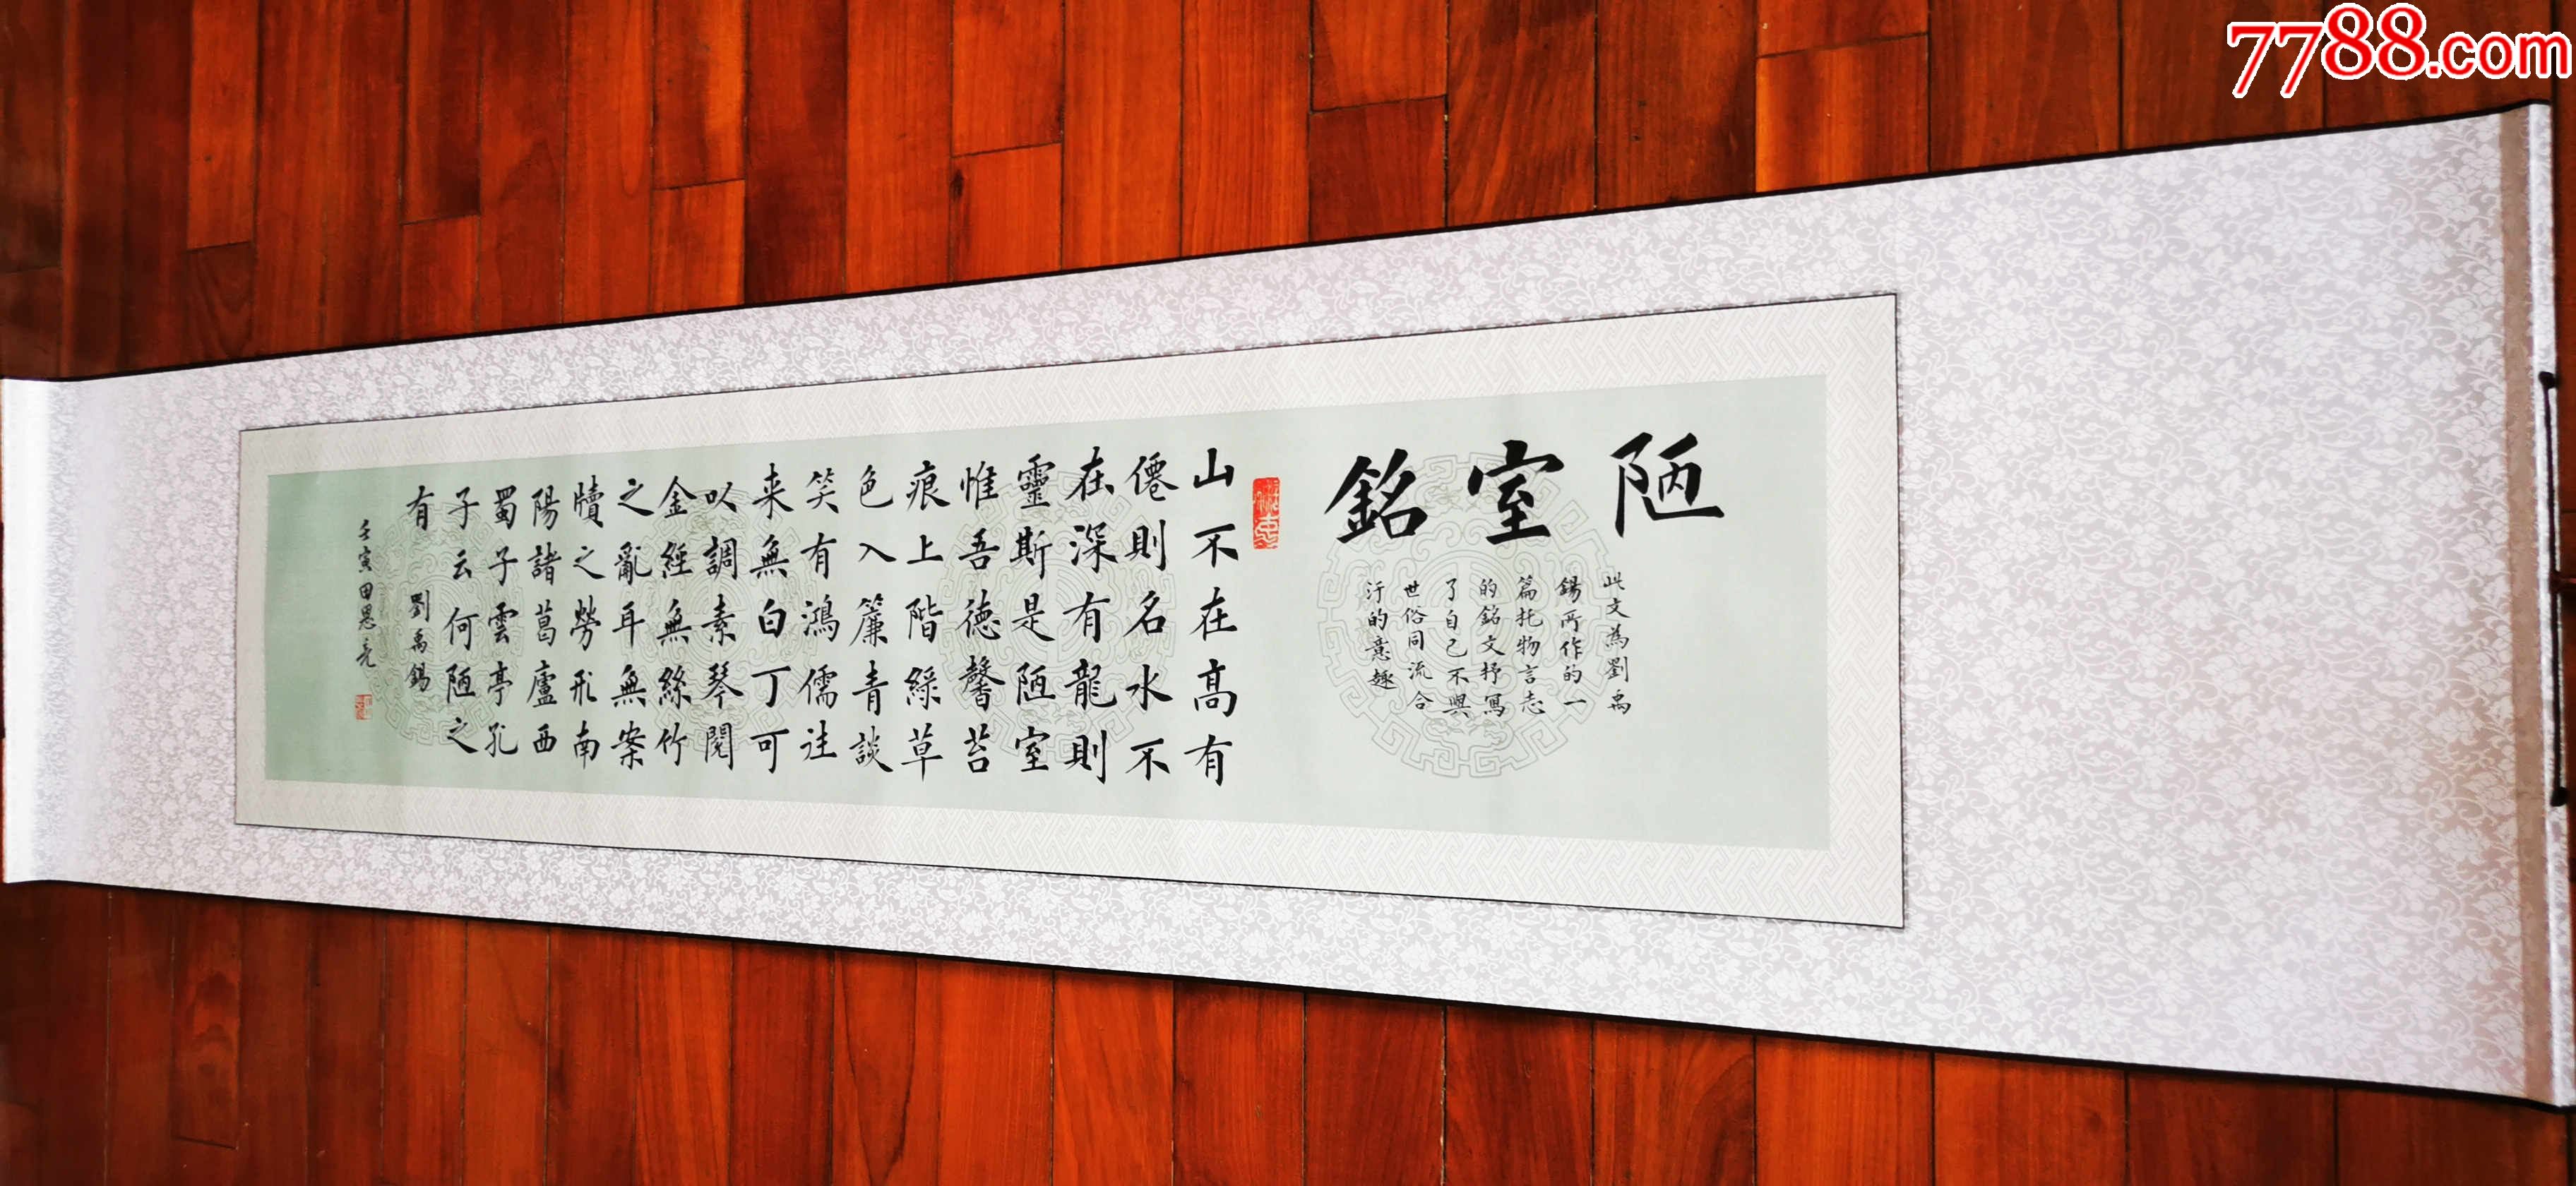 7788.com
陋室銘
此文為劉禹
錫所作的一
篇托物言志
的銘文抒寫
了自己不與
世俗同流合
汙的意趣
山不在高有
僊則名水不
在深有龍則
靈斯是陋室
惟吾德馨苔
痕上階綠草
色入簾青談
笑有鴻儒往
来無白丁可
以調素琴閱
金經無絲竹
之亂耳無案
牘之勞形南
陽諸葛廬西
蜀子雲亭孔
子云何陋之
有 劉禹錫
壬寅田恩亮